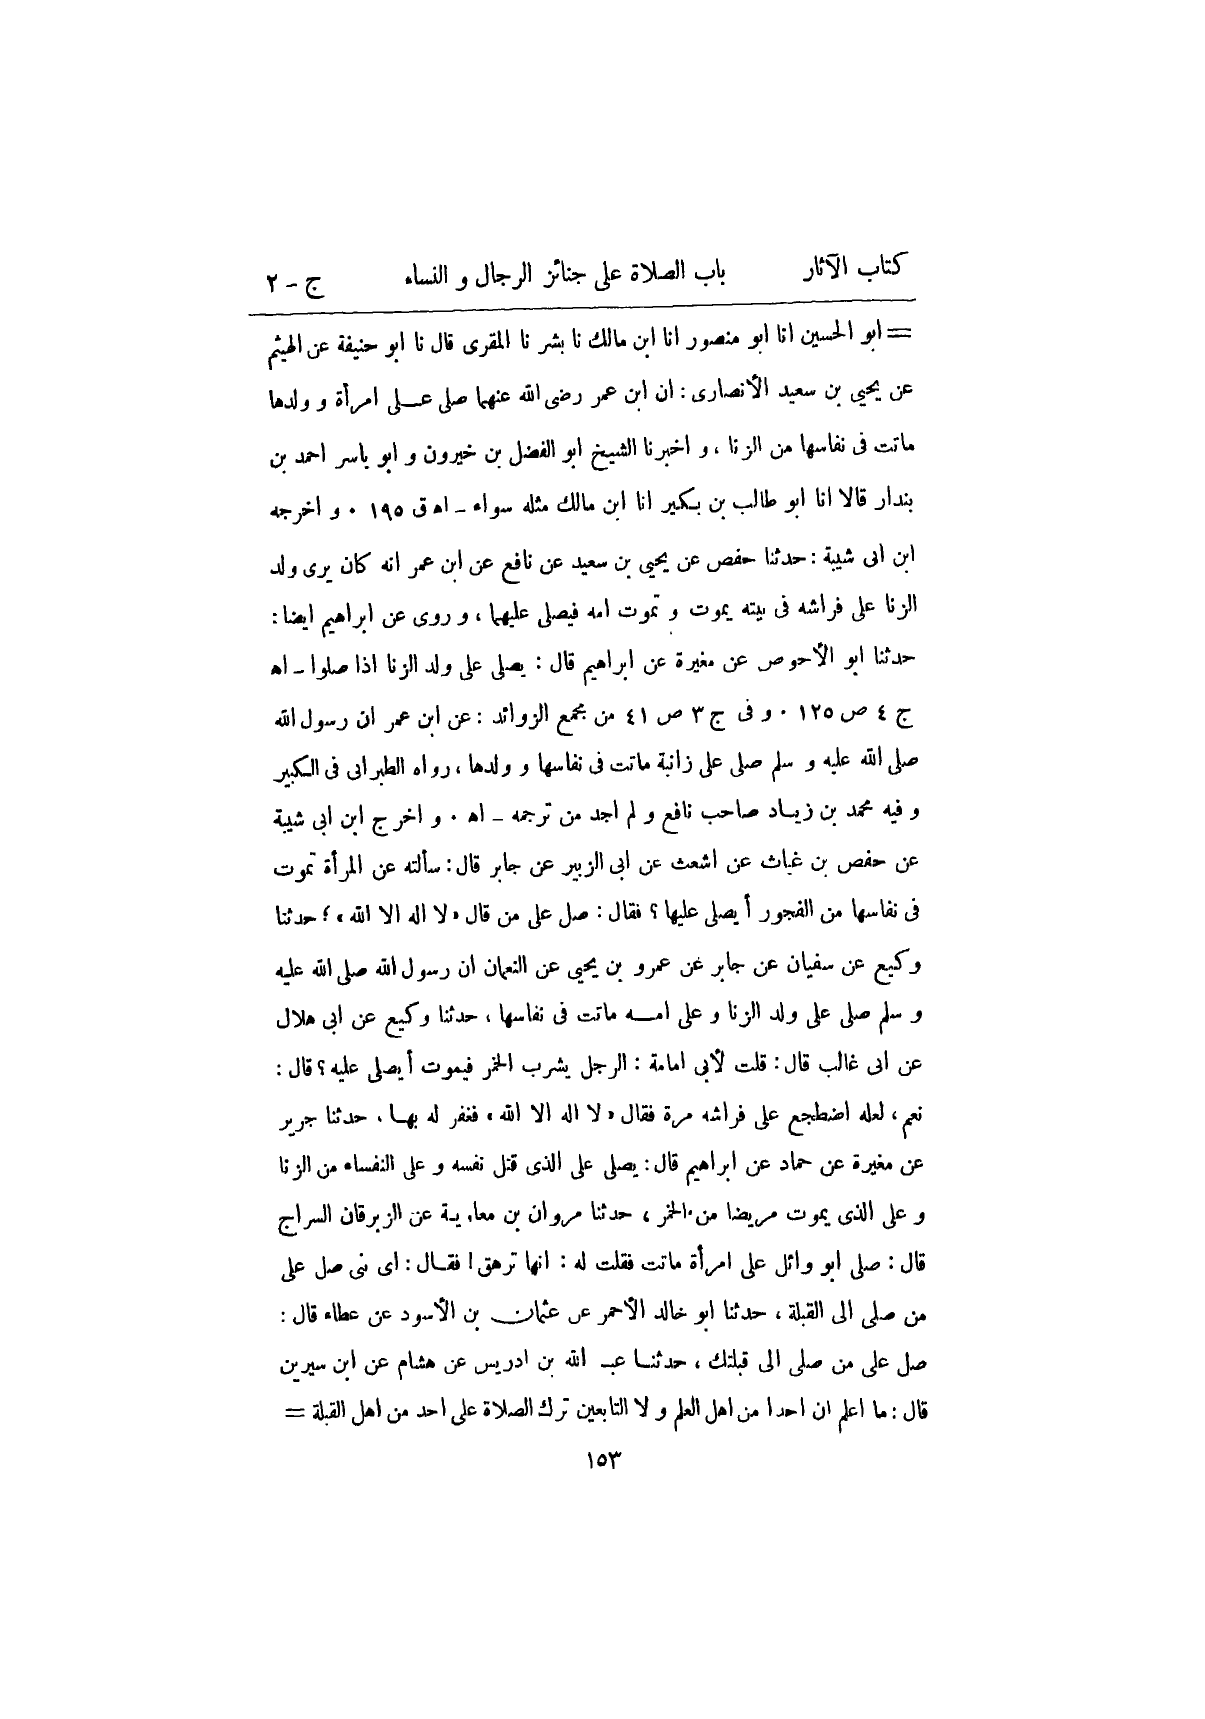 كتاب الآثار باب الصلاة على جنائز الرجال و النساء ج - ٢
= ابو الحسين انا ابو منصور انا ابن مالك نا بشر نا المقرى قال نا ابو حنيفة عن الهيثم
عن يحيى بن سعيد الأنصارى : ان ابن عمر رضى الله عنهما صلى عـــلى امرأة و ولدها
ماتت فى نفاسها من الزنا ، و اخبرنا الشيخ ابو الفضل بن خيرون و ابو ياسر احمد بن
بندار قالا انا ابو طالب بن بكير انا ابن مالك مثله سواء - اه ق ١٩٥ . و اخرجه
ابن ابى شيبة : حدثنا حفص عن يحيى بن سعيد عن نافع عن ابن عمر انه كان يرى ولد
الزنا على فراشه فى بيته يموت و تموت امه فيصلى عليهما ، و روى عن ابراهيم ايضا :
حدثنا ابو الأحوص عن مغيرة عن ابراهيم قال : يصلى على ولد الزنا اذا صلوا - اه
ج ٤ ص ١٢٥ . و فى ج ٣ ص ٤١ من مجمع الزوائد : عن ابن عمر ان رسول الله
صلى الله عليه و سلم صلى على زانية ماتت فى نفاسها و ولدها ، رواه الطبرانى فى الكبير
و فيه محمد بن زيـاد صاحب نافع و لم اجد من ترجمه - اه . و اخرج ابن ابى شيبة
عن حفص بن غياث عن اشعث عن ابى الزبير عن جابر قال : سألته عن المرأة تموت
فى نفاسها من الفجور أ يصلى عليها ؟ فقال : صل على من قال « لا اله الا الله » ؛ حدثنا
وكيع عن سفيان عن جابر عن عمرو بن يحيى عن النعمان ان رسول الله صلى الله عليه
و سلم صلى على ولد الزنا و على امـــه ماتت فى نفاسها ، حدثنا وكيع عن ابى هلال
عن ابى غالب قال : قلت لأبى امامة : الرجل يشرب الخمر فيموت أ يصلى عليه ؟ قال :
نعم ، لعله اضطجع على فراشه مرة فقال « لا اله الا الله » فغفر له بهـا . حدثنا جرير
عن مغيرة عن حماد عن ابراهيم قال : يصلى على الذى قتل نفسه و على النفساء من الزنا
و على الذى يموت مريضا من الخمر ، حدثنا مروان بن معاوية عن الزبرقان السراج
قال : صلى ابو وائل على امرأة ماتت فقلت له : انها ترهق ! فقـال : اى بنى صل على
من صلى الى القبلة ، حدثنا ابو خالد الأحمر عن عثمان بن الأسود عن عطاء قال :
صل على من صلى الى قبلتك ، حدثنـا عبـد الله بن ادريس عن هشام عن ابن سيرين
قال : ما اعلم ان احدا من اهل العلم و لا التابعين ترك الصلاة على احد من اهل القبلة =
١٥٣